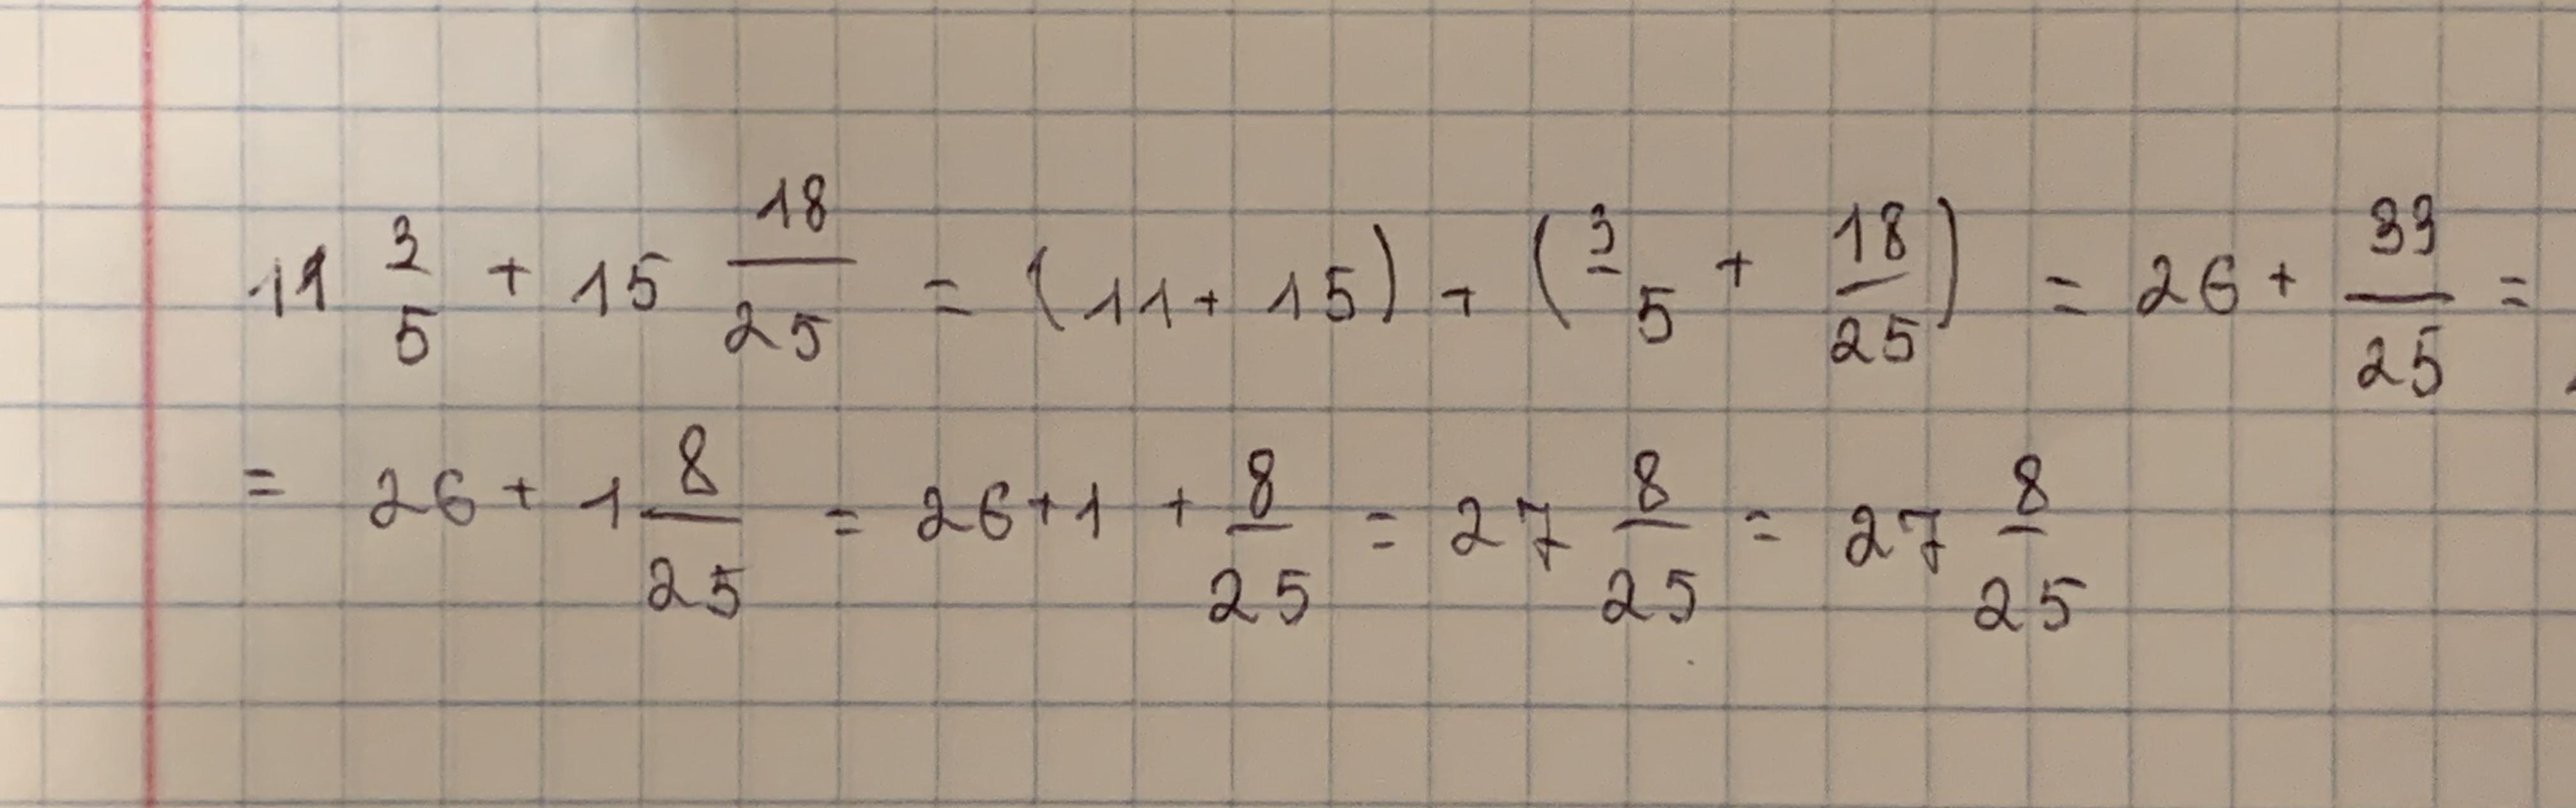 11 3/5 + 15 18/25 = (11 + 15) + (3/5 + 18/25) = 26 + 33/25 =
= 26 + 1 8/25 = 26 + 1 + 8/25 = 27 8/25 = 27 8/25